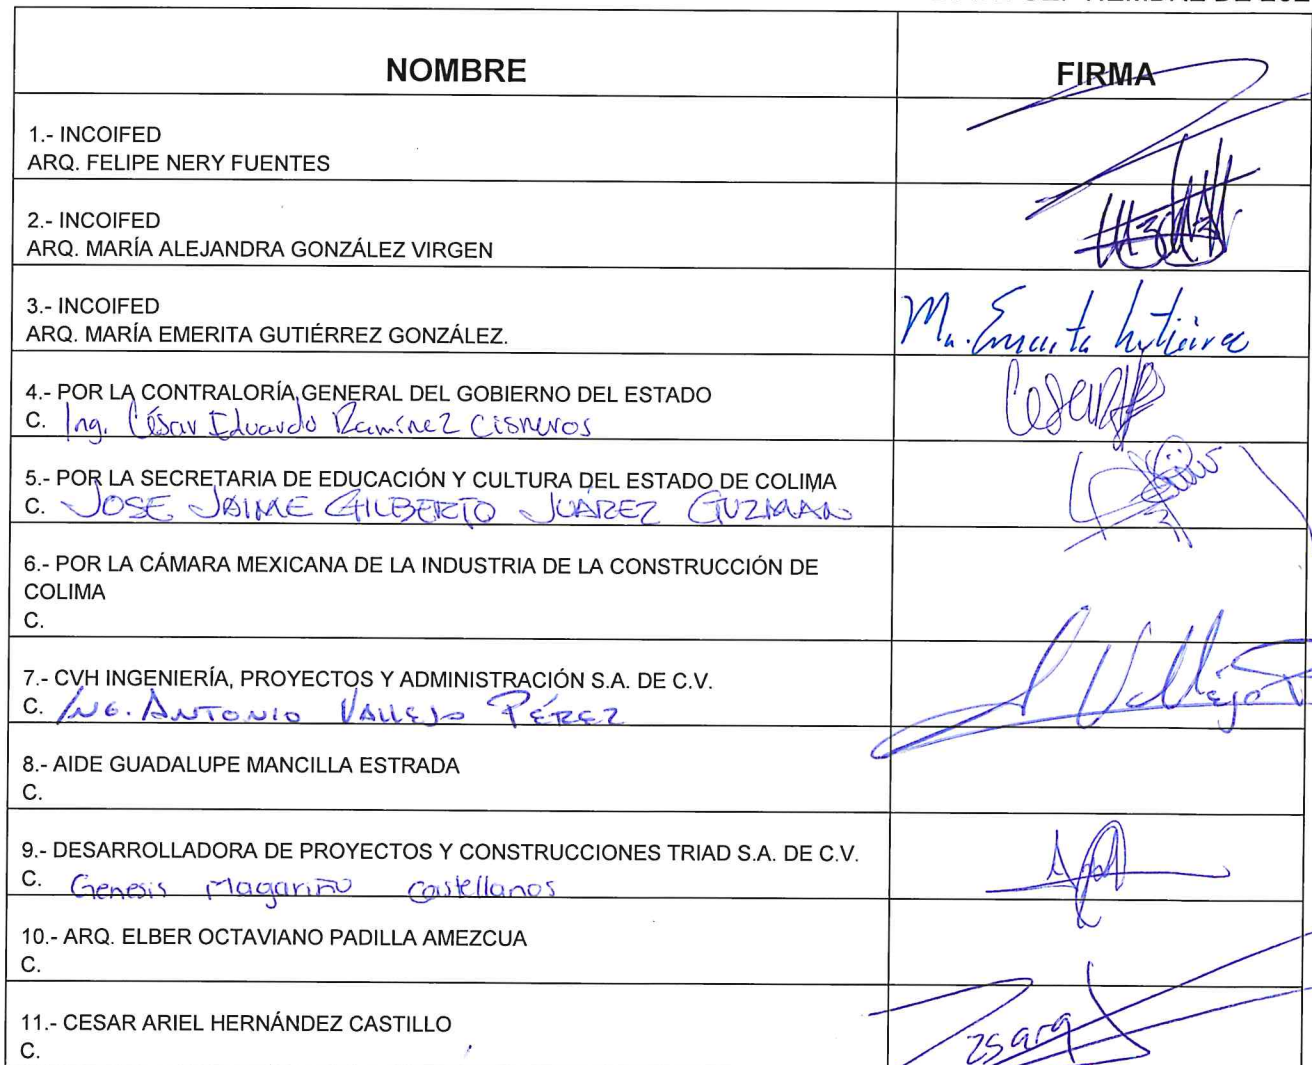 NOMBRE FIRMA
1.- INCOIFED
ARQ. FELIPE NERY FUENTES
2.- INCOIFED
ARQ. MARÍA ALEJANDRA GONZÁLEZ VIRGEN
3.- INCOIFED
ARQ. MARÍA EMERITA GUTIÉRREZ GONZÁLEZ.
4.- POR LA CONTRALORÍA GENERAL DEL GOBIERNO DEL ESTADO
C. Ing. César Eduardo Ramírez Cisneros
5.- POR LA SECRETARIA DE EDUCACIÓN Y CULTURA DEL ESTADO DE COLIMA
C. JOSE JAIME GILBERTO JUÁREZ GUZMAN
6.- POR LA CÁMARA MEXICANA DE LA INDUSTRIA DE LA CONSTRUCCIÓN DE
COLIMA
C.
7.- CVH INGENIERÍA, PROYECTOS Y ADMINISTRACIÓN S.A. DE C.V.
C. ING. ANTONIO VALLEJO PÉREZ
8.- AIDE GUADALUPE MANCILLA ESTRADA
C.
9.- DESARROLLADORA DE PROYECTOS Y CONSTRUCCIONES TRIAD S.A. DE C.V.
C. Genesis Magariño Castellanos
10.- ARQ. ELBER OCTAVIANO PADILLA AMEZCUA
C.
11.- CESAR ARIEL HERNÁNDEZ CASTILLO
C.